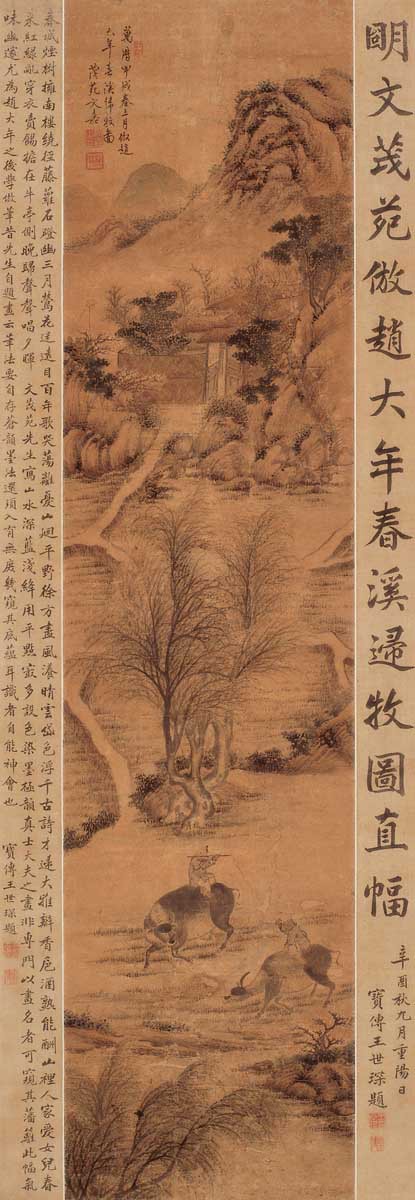 明文茂苑倣趙大年春溪歸牧圖直幅
辛酉秋九月重陽日
寶傳王世琛題
萬曆甲戌春三月倣趙
大年春溪歸牧圖
茂苑文嘉
春城煙樹擁南樓繞徑藤蘿石磴幽三月鶯花迷遠目百年歌哭蕩離憂山迴平野徐方盡風瀁晴雲岱色浮千古詩才速大雅斝香巵酒熟能酬山裡人家愛女兒春
衣紅綠亂穿衣賣餳擔在牛亭側晚歸聲聲唱夕暉 文茂苑先生寫山水深藍淺絳用平點最多設色染墨極韻真士大夫之畫非專門以畫名者可窺其藩籬此幅氣
味幽邃尤為趙大年之後學倣華昔先生自題畫云筆法要自存蒼韻墨法還須入有無庶幾窺其底蘊耳識者自能神會也
寶傳王世琛題